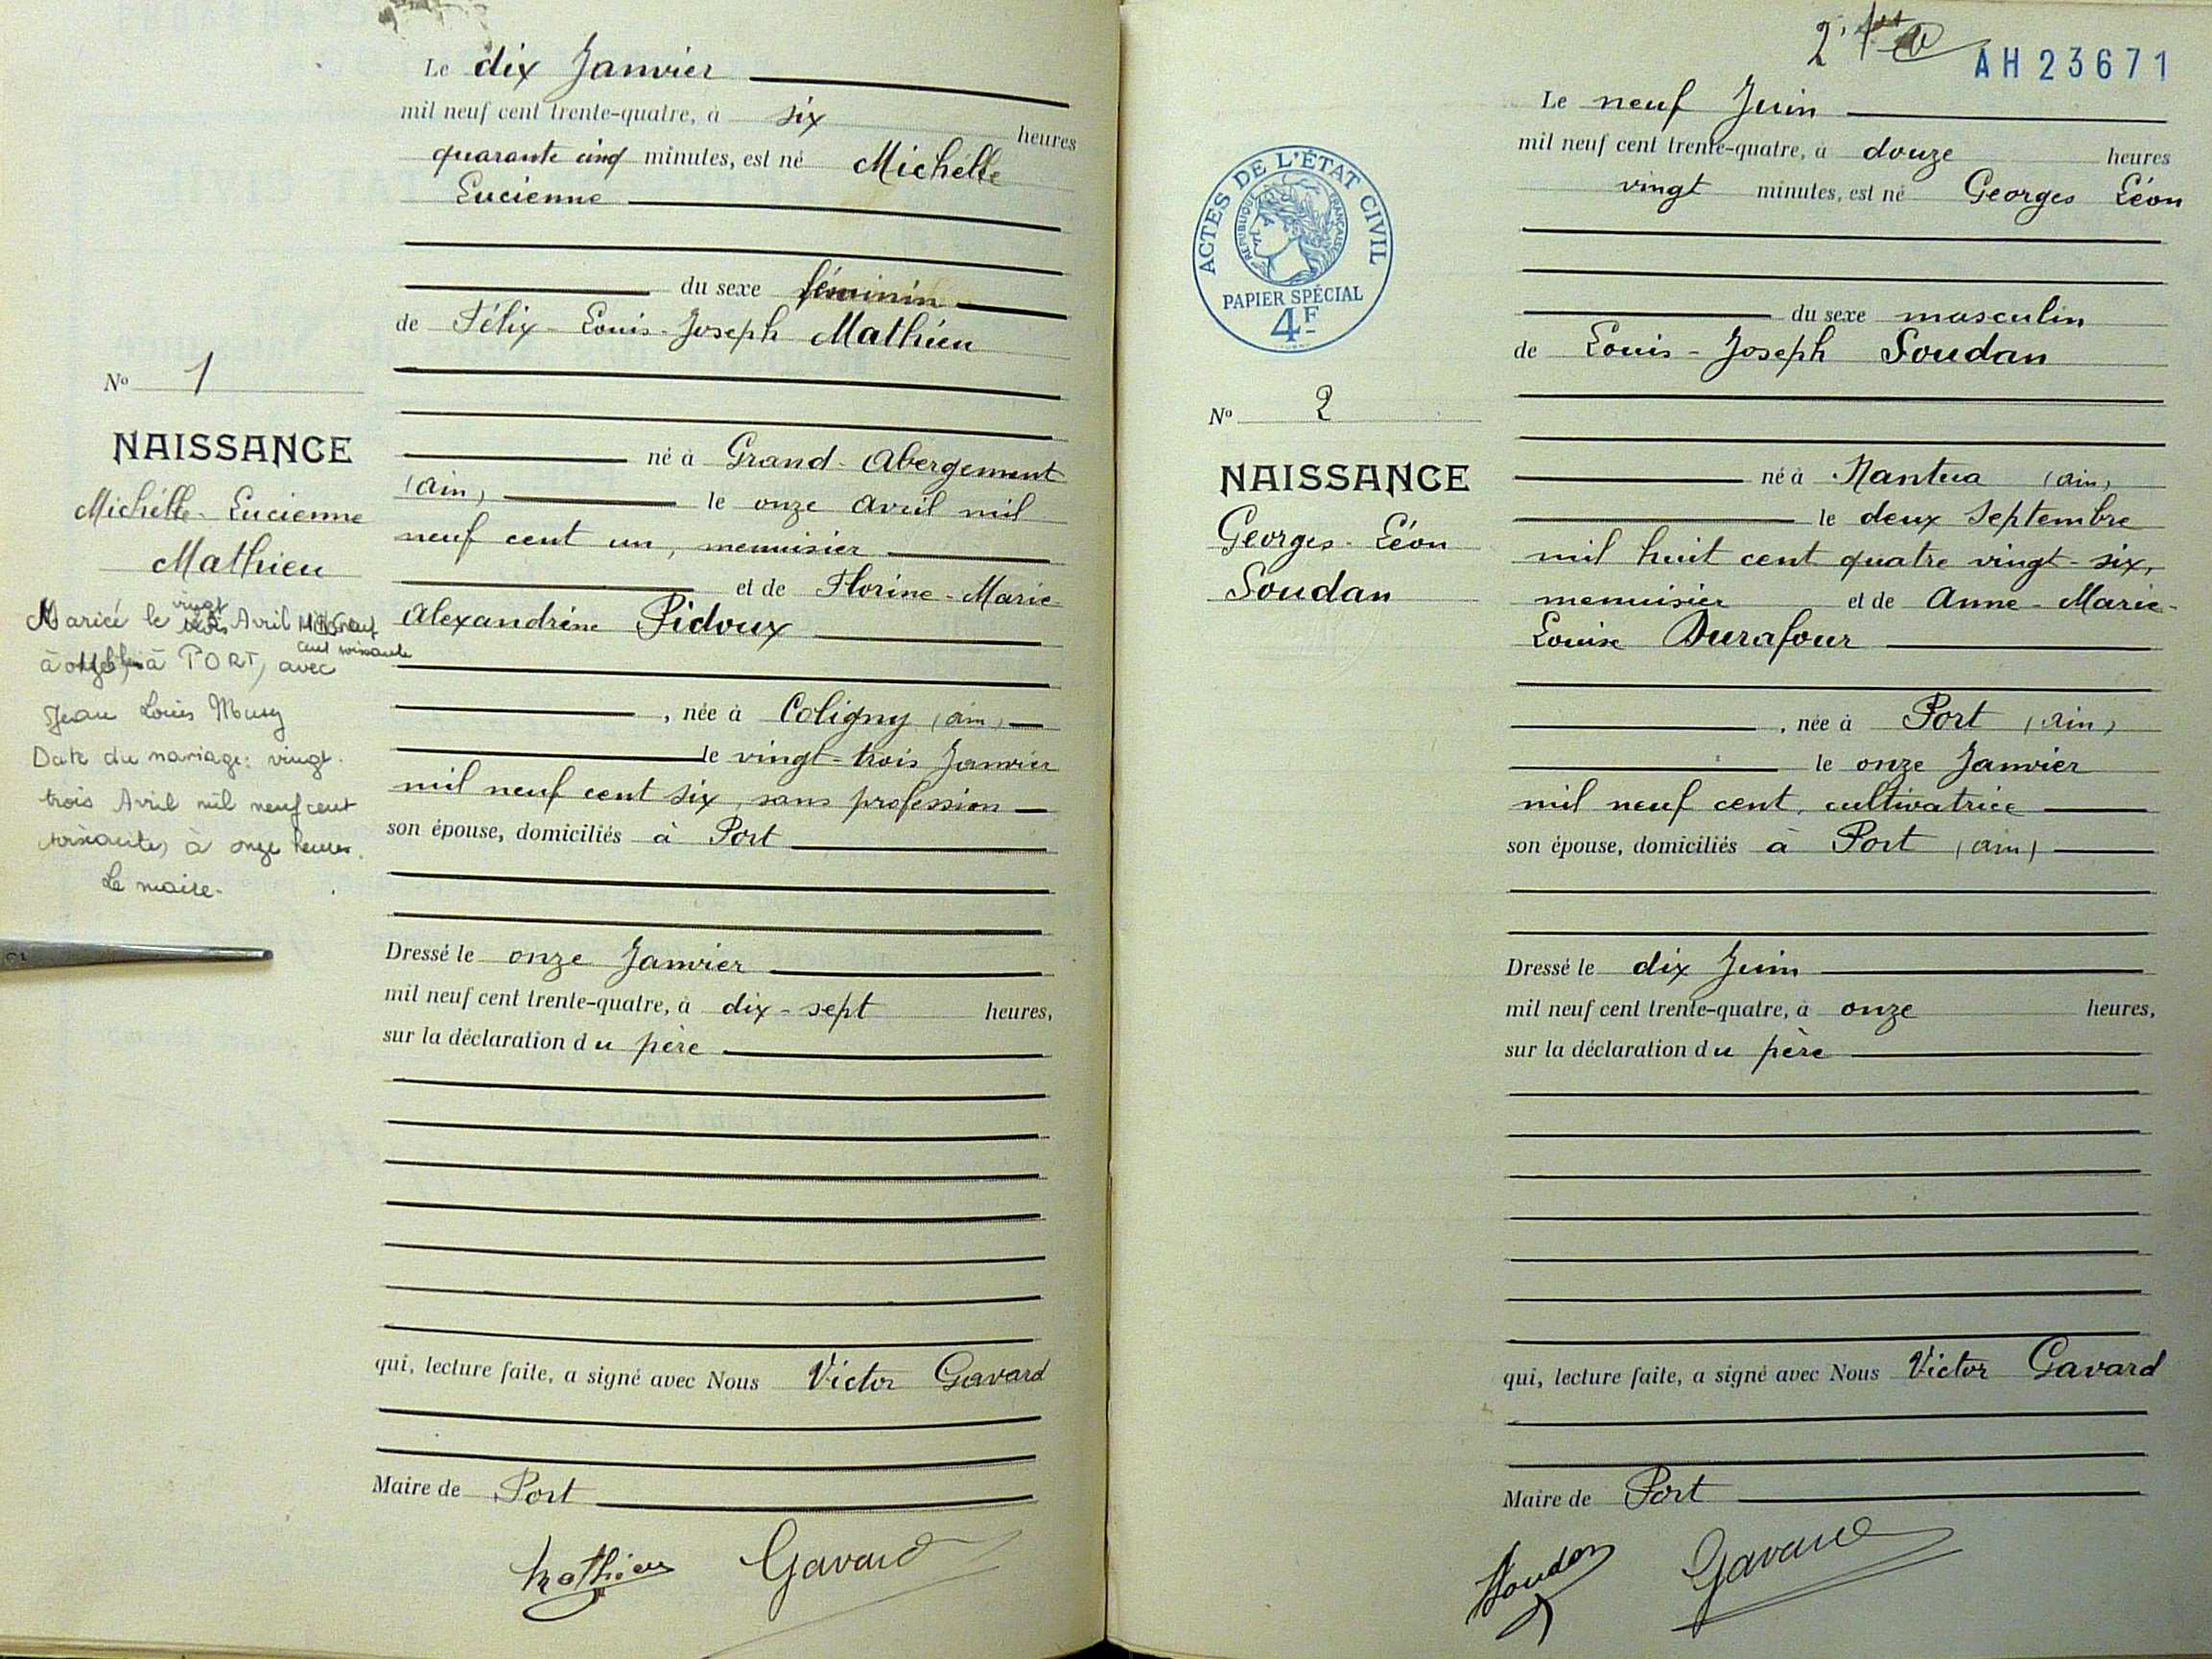 Le dix Janvier
mil neuf cent trente-quatre, à six heures
quarante cinq minutes, est né Michelle
Lucienne
du sexe féminin
de Félix-Louis-Joseph Mathieu
né à Grand-Abergement
(Ain) le onze Avril mil
neuf cent un, menuisier
et de Florine-Marie
Alexandrine Pidoux
, née à Coligny (Ain)
le vingt-trois Janvier
mil neuf cent six, sans profession
son épouse, domiciliés à Port
Dressé le onze Janvier
mil neuf cent trente-quatre, à dix-sept heures,
sur la déclaration du père
qui, lecture faite, a signé avec Nous Victor Gavard
Maire de Port
Mathieu Gavard
No 1
NAISSANCE
Michelle-Lucienne
Mathieu
Mariée le vingt trois Avril
cent soixante
à PORT, avec
Jean Louis Musy
Date du mariage: vingt
trois Avril mil neuf cent
soixante, à onze heures.
Le maire.
2
AH23671
Le neuf Juin
mil neuf cent trente-quatre, à douze heures
vingt minutes, est né Georges Léon
du sexe masculin
de Louis-Joseph Soudan
né à Nantua (Ain)
le deux Septembre
mil huit cent quatre vingt-six,
menuisier et de Anne-Marie-
Louise Durafour
, née à Port (Ain)
le onze Janvier
mil neuf cent, cultivatrice
son épouse, domiciliés à Port (Ain)
Dressé le dix Juin
mil neuf cent trente-quatre, à onze heures,
sur la déclaration du père
qui, lecture faite, a signé avec Nous Victor Gavard
Maire de Port
Soudan Gavard
ACTES DE L'ÉTAT CIVIL
RÉPUBLIQUE FRANÇAISE
PAPIER SPÉCIAL
4F
No 2
NAISSANCE
Georges-Léon
Soudan